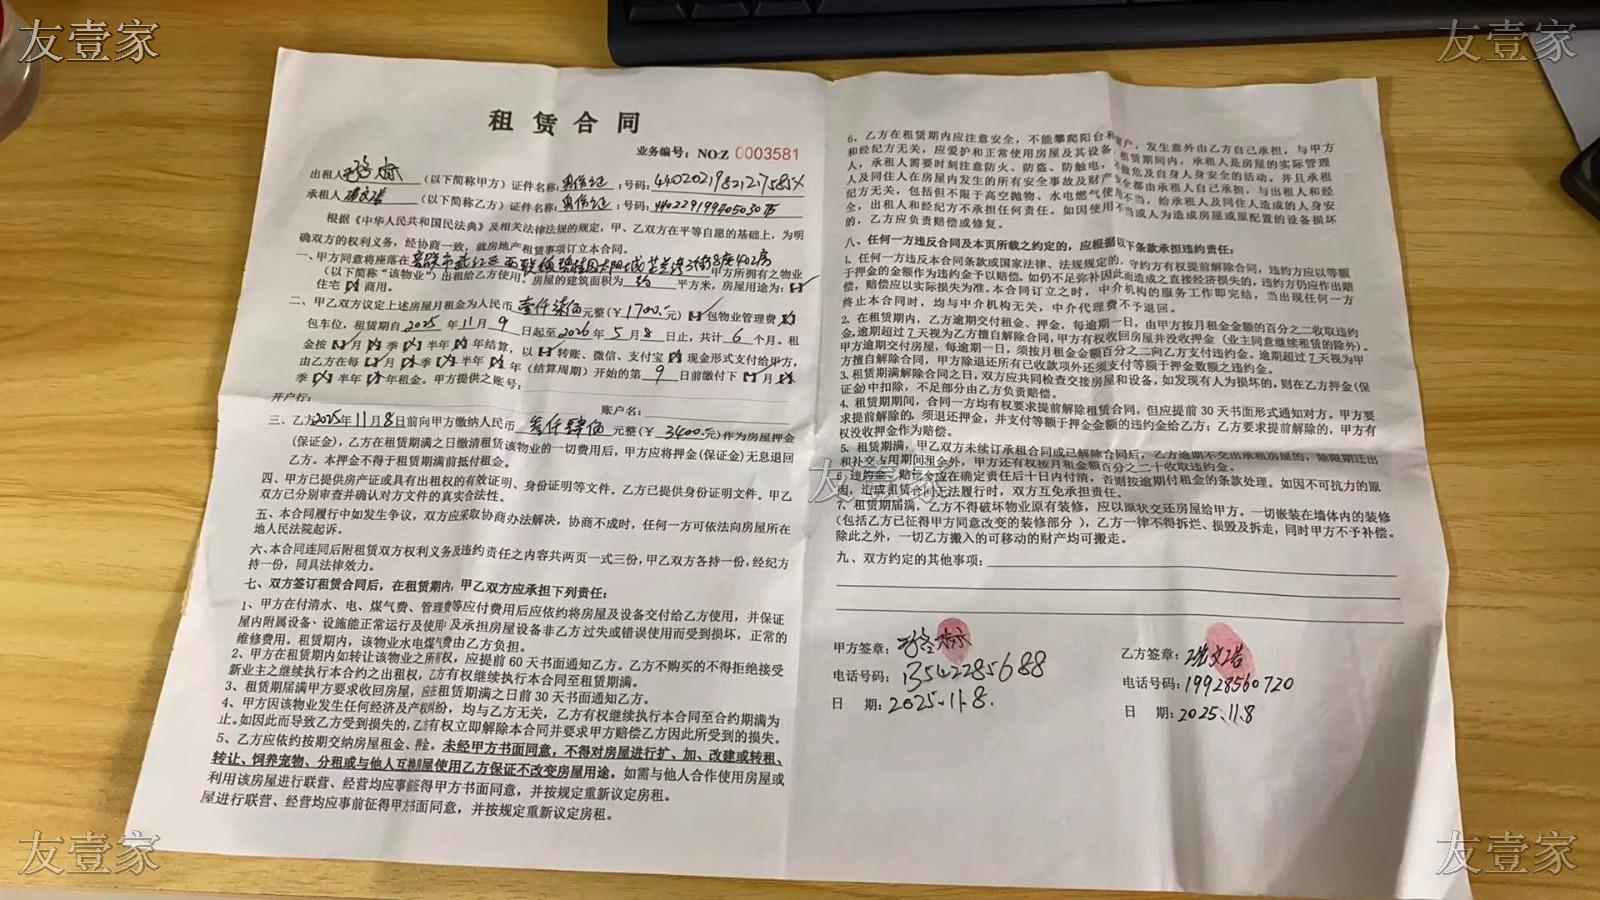 友壹家
友壹家
租赁合同
业务编号：NO:Z 0003581
出租人 （以下简称甲方）证件名称：身份证；号码：44020219821217581X
承租人 （以下简称乙方）证件名称：身份证；号码：
根据《中华人民共和国民法典》及相关法律法规的规定，甲、乙双方在平等自愿的基础上，为明
确双方的权利义务，经协商一致，就房地产租赁事项订立本合同。
一、甲方同意将座落在韶关市武江区西联镇碧桂园太阳城芷兰湾 街8座402房 甲方所拥有之物业
（以下简称“该物业”）出租给乙方使用。房屋的建筑面积为 平方米，房屋用途为：
住宅 商用。
二、甲乙双方议定上述房屋月租金为人民币壹仟柒佰元整(￥1700.元) 包物业管理费
包车位，租赁期自2025年11月9日起至2026年5月8日止，共计6个月。租
金按 月 季 半年 年结算，以 转账、微信、支付宝 现金形式支付给甲方，
由乙方在每 月 季 半年 年（结算周期）开始的第9日前缴付下 月
季 半年 年租金。甲方提供之账号：
开户行： 账户名：
三、乙方2025年11月8日前向甲方缴纳人民币叁仟肆佰元整(￥3400.元)作为房屋押金
(保证金)，乙方在租赁期满之日缴清租赁该物业的一切费用后，甲方应将押金(保证金)无息退回
乙方。本押金不得于租赁期满前抵付租金。
四、甲方已提供房产证或具有出租权的有效证明、身份证明等文件。乙方已提供身份证明文件。甲乙
双方已分别审查并确认对方文件的真实合法性。
五、本合同履行中如发生争议，双方应采取协商办法解决，协商不成时，任何一方可依法向房屋所在
地人民法院起诉。
六、本合同连同后附租赁双方权利义务及违约责任之内容共两页一式三份，甲乙双方各持一份，经纪方
持一份，同具法律效力。
七、双方签订租赁合同后，在租赁期内，甲乙双方应承担下列责任：
1、甲方在付清水、电、煤气费、管理费等应付费用后应依约将房屋及设备交付给乙方使用，并保证
屋内附属设备、设施能正常运行及使用及承担房屋设备非乙方过失或错误使用而受到损坏，正常的
维修费用。租赁期内，该物业水电煤气费由乙方负担。
2、甲方在租赁期内如转让该物业之所有权，应提前60天书面通知乙方。乙方不购买的不得拒绝接受
新业主之继续执行本合约之出租权，乙方有权继续执行本合同至租赁期满。
3、租赁期届满甲方要求收回房屋，应在租赁期满之日前30天书面通知乙方。
4、甲方因该物业发生任何经济及产权纠纷，均与乙方无关，乙方有权继续执行本合同至合约期满为
止。如因此而导致乙方受到损失的，乙方有权立即解除本合同并要求甲方赔偿乙方因此所受到的损失。
5、乙方应依约按期交纳房屋租金、押金。未经甲方书面同意，不得对房屋进行扩、加、改建或转租、
转让、饲养宠物、分租或与他人互换房屋使用乙方保证不改变房屋用途。如需与他人合作使用房屋或
利用该房屋进行联营、经营均应事前征得甲方书面同意，并按规定重新议定房租。
屋进行联营、经营均应事前征得甲方书面同意，并按规定重新议定房租。
6、乙方在租赁期内应注意安全，不能攀爬阳台和窗户，发生意外由乙方自己承担，与甲方
和经纪方无关，应爱护和正常使用房屋及其设备，租赁期间内，承租人是房屋的实际管理
人，承租人需要时刻注意防火、防盗、防触电，不做危及自身人身安全的活动，并且承租
人及同住人在房屋内发生的所有安全事故及财产安全都由承租人自己承担，与出租人和经
纪方无关，包括但不限于高空抛物、水电燃气使用不当，给承租人及同住人造成的人身安
全，出租人和经纪方不承担任何责任。如因使用不当或人为造成房屋或原配置的设备损坏
的，乙方应负责赔偿或修复。
八、任何一方违反合同及本页所载之约定的，应根据以下条款承担违约责任：
1、任何一方违反本合同条款或国家法律、法规规定的，守约方有权提前解除合同，违约方应以等额
于押金的金额作为违约金予以赔偿。如仍不足弥补因此而造成之直接经济损失的，违约方仍应作出赔
偿，赔偿应以实际损失为准。本合同订立之时，中介机构的服务工作即完结，当出现任何一方
终止本合同时，均与中介机构无关，中介代理费不予退还。
2、在租赁期内，乙方逾期交付租金、押金，每逾期一日，由甲方按月租金金额的百分之二收取违约
金,逾期超过7天视为乙方擅自解除合同,甲方有权收回房屋并没收押金（业主同意继续租赁的除外）。
甲方逾期交付房屋，每逾期一日，须按月租金金额百分之二向乙方支付违约金。逾期超过7天视为甲
方擅自解除合同，甲方除退还所有已收款项外还须支付等额于押金数额之违约金。
3、租赁期满解除合同之日,双方应共同检查交接房屋和设备,如发现有人为损坏的,则在乙方押金(保
证金)中扣除，不足部分由乙方负责赔偿。
4、租赁期期间，合同一方均有权要求提前解除租赁合同，但应提前30天书面形式通知对方。甲方要
求提前解除的，须退还押金，并支付等额于押金金额的违约金给乙方；乙方要求提前解除的，甲方有
权没收押金作为赔偿。
5、租赁期满，甲乙双方未续订承租合同或已解除合同后，乙方逾期不交出承租房屋的，除限期迁出
和补交占用期间租金外，甲方还有权按月租金额百分之二十收取违约金。
6、违约金、赔偿金应在确定责任后十日内付清，否则按逾期付租金的条款处理。如因不可抗力的原
因，造成租赁合同无法履行时，双方互免承担责任。
友壹家
7、租赁期届满，乙方不得破坏物业原有装修，应以原状交还房屋给甲方。一切嵌装在墙体内的装修
(包括乙方已征得甲方同意改变的装修部分），乙方一律不得拆烂、损毁及拆走，同时甲方不予补偿。
除此之外，一切乙方搬入的可移动的财产均可搬走。
九、双方约定的其他事项：
甲方签章：
电话号码：13542285688
日 期：2025.11.8.
乙方签章：
电话号码：19928560720
日 期：2025.11.8
友壹家
友壹家